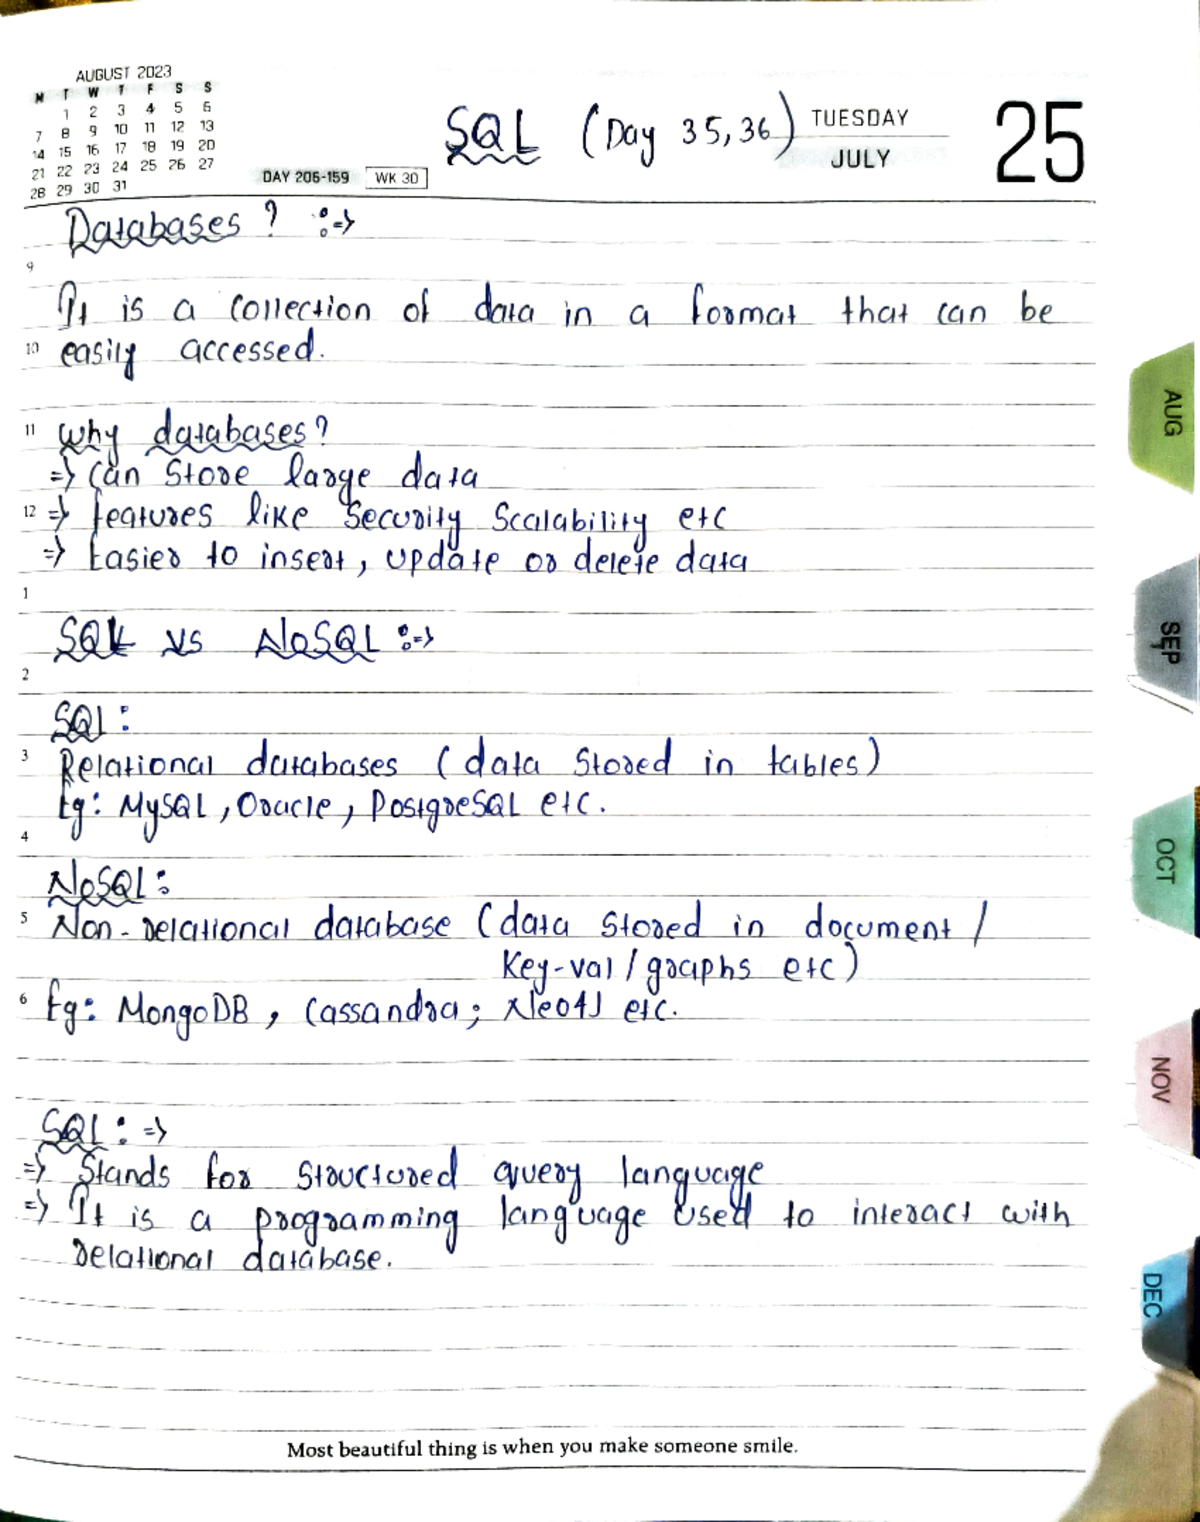 AUGUST 2023
M T W T F S S
1 2 3 4 5 6
7 8 9 10 11 12 13
14 15 16 17 18 19 20
21 22 23 24 25 26 27
28 29 30 31
DAY 206-159 WK 30
SQL (Day 35,36)
TUESDAY
JULY
25
Databases? :=>
9
It is a collection of data in a format that can be
10 easily accessed.
11 Why databases?
=> Can store large data
12 => features like Security Scalability etc
=> Easier to insert, update or delete data
1
SQL vs NoSQL :=>
2
SQL:
3 Relational databases (data stored in tables)
Eg: MySQL, Oracle, PostgreSQL etc.
4
NoSQL:
5 Non-relational database (data stored in document /
Key-val / graphs etc)
6 Eg: MongoDB, Cassandra; Neo4J etc.
SQL: =>
=> Stands for Structured query language
=> It is a programming language used to interact with
relational database.
Most beautiful thing is when you make someone smile.
AUG
SEP
OCT
NOV
DEC